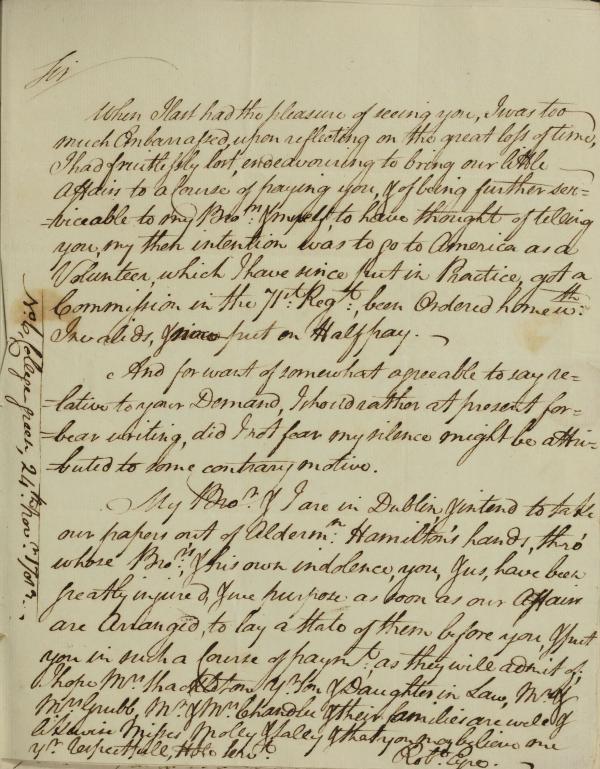 Sir
When I last had the pleasure of seeing you, I was too
much Embarrassed, upon reflecting on the great loss of time,
I had fruitlessly lost, endeavouring to bring our little
Affairs to a course of paying you, & of being further ser=
=viceable to my Bro.r & myself, to have thought of telling
you, my then intention was to go to America as a
Volunteer, which I have since put in Practice, got a
Commission in the 71.st Reg.t, been Ordered home w.th
Invalids, & now put on Half pay. -
And for want of somewhat agreeable to say re=
=lative to your Demand, I should rather at present for=
=bear writing, did I not fear my silence might be attri=
=buted to some contrary motive.
My Bro.r & I are in Dublin, & intend to take
our papers out of Alderm.n Hamilton's hands, thro'
whose Bro.rs, & his own indolence, you, & us, have been
greatly injured, & we purpose as soon as our Affairs
are Arranged, to lay a State of them before you, & put
you in such a Course of paym.t, as they will admit of,
I hope M.rs Shackleton, y.r Son & Daughter in Law, M.r &
M.rs Grubb, M.r & M.rs Chandlee & their families are well &
likewise Misses Molly & Sally & that you may believe me
y.r respectfull, H.ble Serv.t
Rob.t Eyre.
N.o 6, College green, 24.th Nov.r 1782.